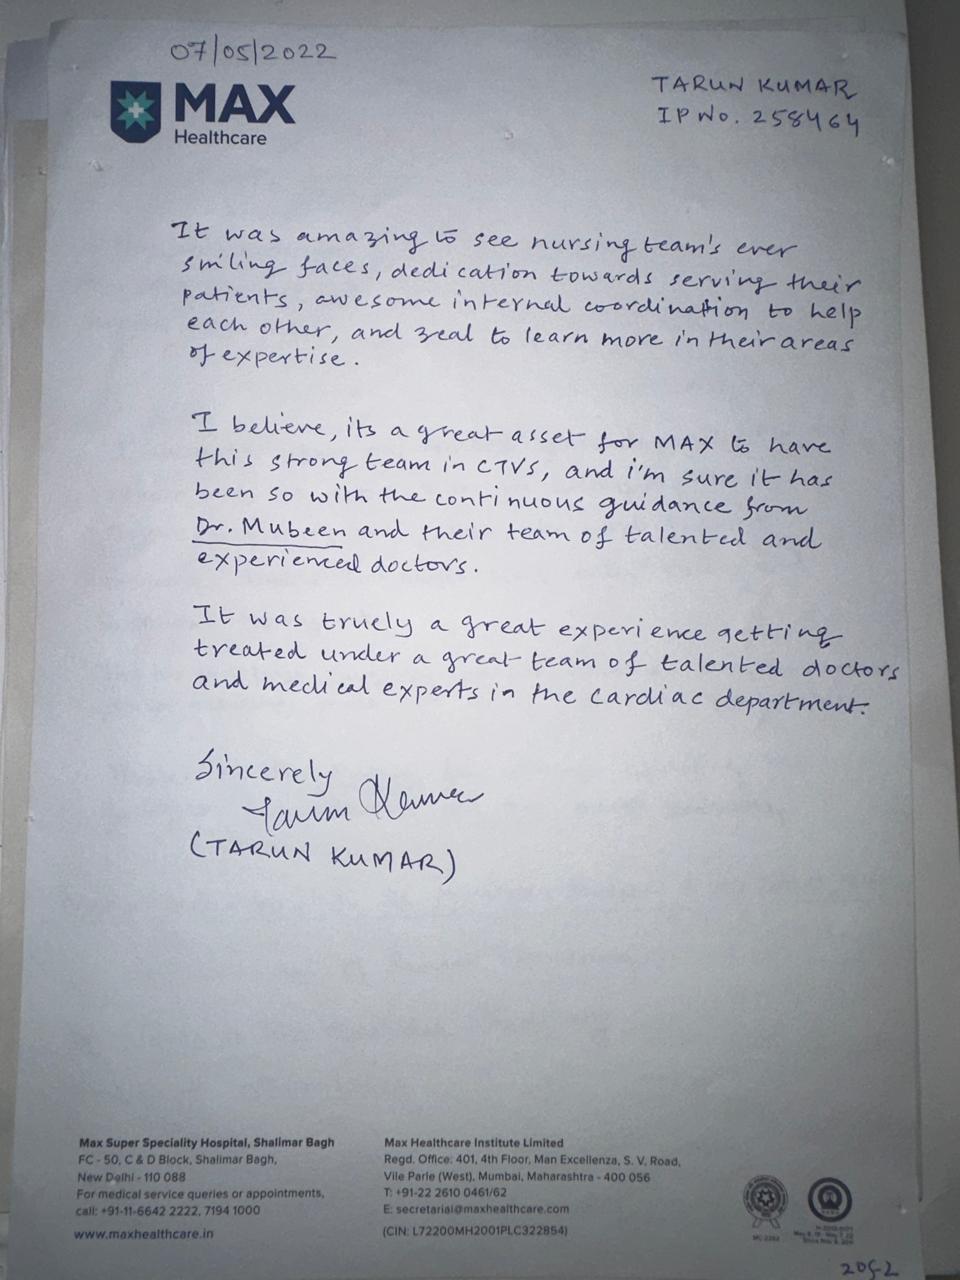 07/05/2022
MAX
Healthcare
TARUN KUMAR
IP No. 258464
It was amazing to see nursing team's ever
smiling faces, dedication towards serving their
patients, awesome internal coordination to help
each other, and zeal to learn more in their areas
of expertise.
I believe, its a great asset for MAX to have
this strong team in CTVS, and i'm sure it has
been so with the continuous guidance from
Dr. Mubeen and their team of talented and
experienced doctors.
It was truely a great experience getting
treated under a great team of talented doctors
and medical experts in the cardiac department.
Sincerely
Tarun Kumar
(TARUN KUMAR)
Max Super Speciality Hospital, Shalimar Bagh
FC - 50, C & D Block, Shalimar Bagh,
New Delhi - 110 088
For medical service queries or appointments,
call: +91-11-6642 2222, 7194 1000
www.maxhealthcare.in
Max Healthcare Institute Limited
Regd. Office: 401, 4th Floor, Man Excellenza, S. V. Road,
Vile Parle (West), Mumbai, Maharashtra - 400 056
T: +91-22 2610 0461/62
E: secretarial@maxhealthcare.com
(CIN: L72200MH2001PLC322854)
MC-2282